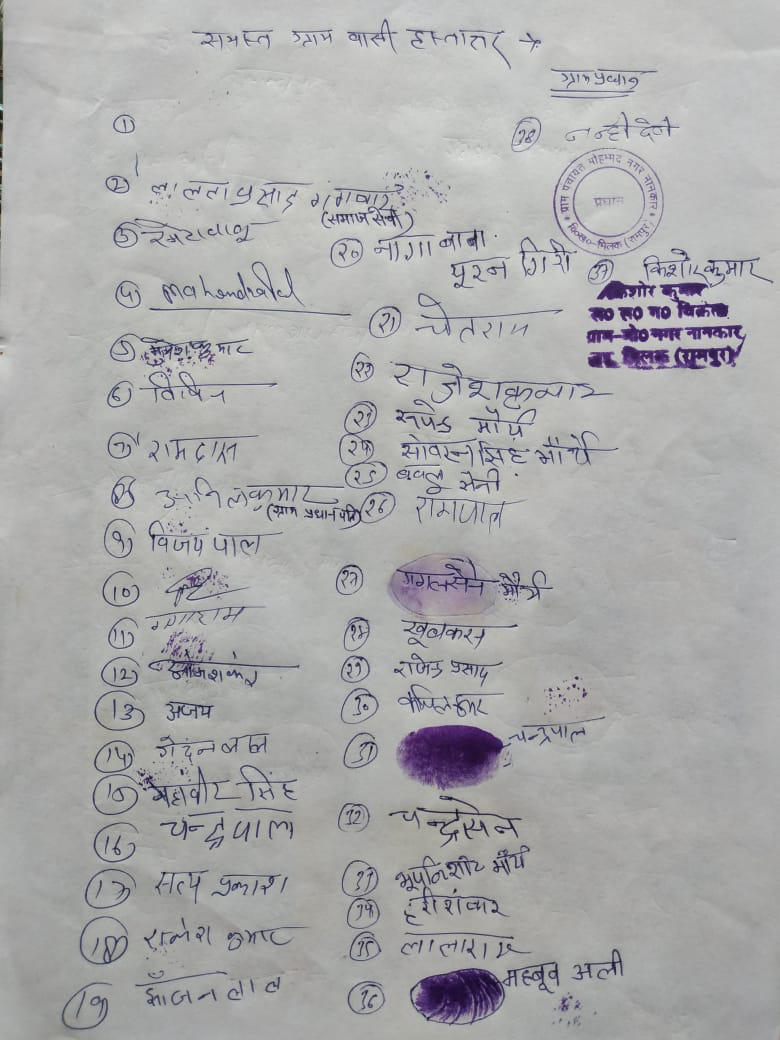 समस्त ग्राम वासी हस्ताक्षर →
ग्राम प्रधान
①
② लालता प्रसाद गंगवार
(समाजसेवी)
③
④ Mahendra
⑤ कुमार
⑥ विपिन
⑦ रामदास
⑧ अनिल कुमार
(ग्राम प्रधान पति)
⑨ विजय पाल
⑩
⑪ गंगाराम
⑫
⑬ अजय
⑭ गेंदन लाल
⑮ महावीर सिंह
⑯ चन्द्रपाल
⑰ सत्य प्रकाश
⑱ राजेश कुमार
⑲ झाँजन लाल
⑳ नागा बाबा
पूरन गिरी
㉑ चेतराम
㉒ राजेश कुमार
㉓ मौर्य
㉔ सोवरन सिंह मौर्य
㉕ बबलू सैनी
㉖ रामपाल
㉗ मौर्य
㉘ खूबकरन
㉙ राजेन्द्र प्रसाद
㉚
㉛ चन्द्रपाल
㉜ चन्द्रसेन
㉝ मौर्य
㉞ हरीशंकर
㉟ लालाराम
㊱ महबूब अली
㊲ किशोर कुमार
किशोर कुमार
स० स० ग० विक्रेता
ग्राम-मो० नगर नानकार
मिलक (रामपुर)
㊳ नन्ही देवी
ग्राम पंचायत मोहम्मद नगर नानकार
प्रधान
वि०ख०-मिलक (रामपुर)